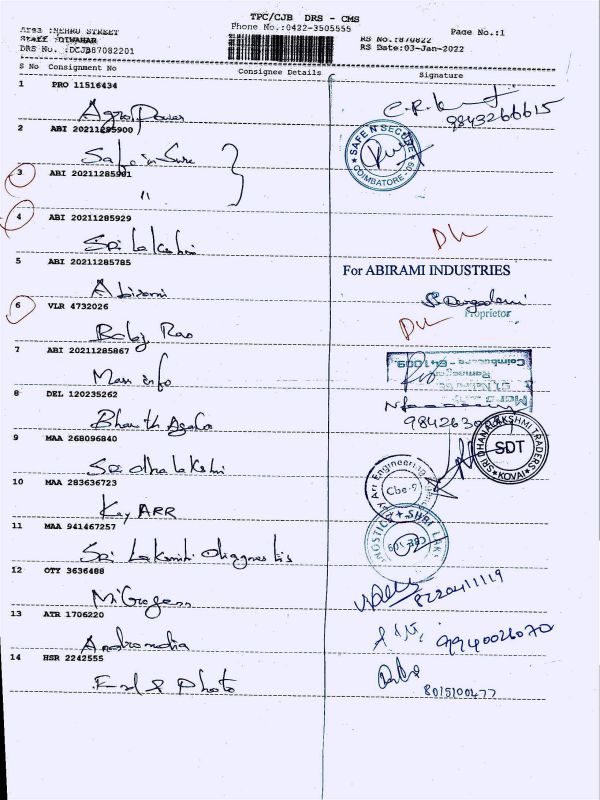 TPC/CJB DRS - CMS
Phone No.:0422-3505555
Area :NEHRU STREET
Staff :DIWAHAR
DRS No. :DCJB87082201
RS No.:870822
Page No.:1
RS Date:03-Jan-2022
S No Consignment No Consignee Details Signature
1 PRO 11516434
Agro Power
9843266615
2 ABI 20211285900
Safe n Sure
SAFE N SECURE
COIMBATORE-09
3 ABI 20211285901
"
4 ABI 20211285929
Sri Lakshmi
5 ABI 20211285785
For ABIRAMI INDUSTRIES
Abirami
Proprietor
6 VLR 4732026
Balaji Rao
7 ABI 20211285867
Mass info
Coimbatore - 641009.
Ramnagar
8 DEL 120235262
Bharath Agalo
9 MAA 268096840
SRI DHANALAKSHMI TRADERS
SDT
KOVAI
Sri dha lakshmi
10 MAA 283636723
Key ARR
Key Arr Engineering
Cbe-9
11 MAA 941467257
Sri Lakshmi Diagnostis
CBE-109
12 OTT 3636488
8220411119
13 ATR 1706220
Andromedia
9940026070
14 HSR 2242555
Photo
8015100477